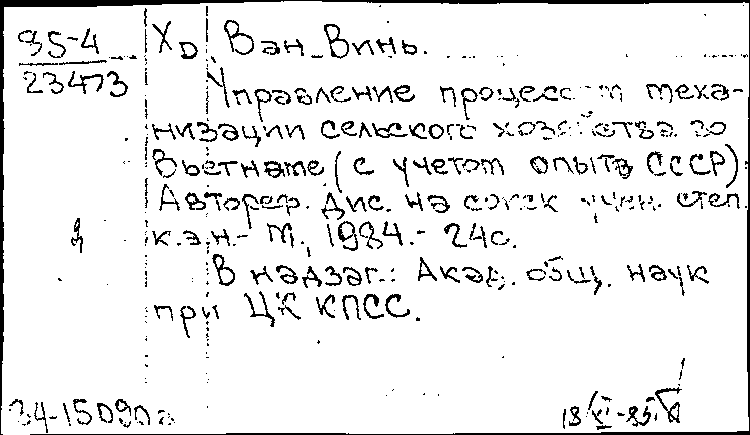 85-4 Хо Ван Винь.
23473
Управление процессом меха-
низации сельского хозяйства во
Вьетнаме (с учетом опыта СССР):
Автореф. дис. на соиск. учен. степ.
к.э.н.- М., 1984.- 24с.
В надзаг.: Акад. общ. наук
при ЦК КПСС.
84-15090а